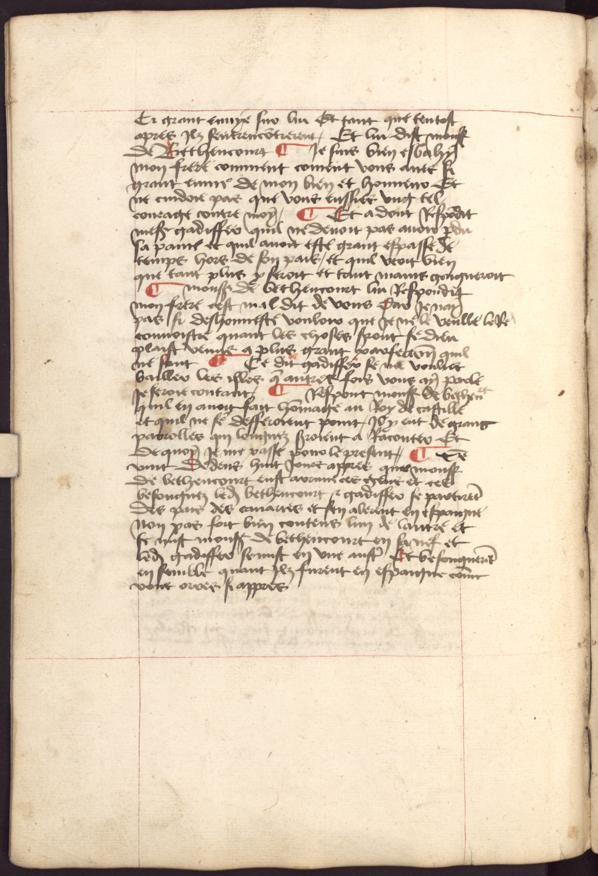 Et grant envye sur lui Et tant que tentost
apres Ilz sentrencôtrerent Et lui dist monsr
de Bethencourt ¶ Je suis bien esbahy
mon frere comment coment vous avez si
grant envie de mon bien et honneur Et
ne cuidoie pas que vous eussies ung tel
courage contre moy ¶ Et adont Respôdit
mesr gadiffer quil ne devoit pas avoir pdu
sa paine et quil avoit este grant espasse de
temps hors de son pais et quil veoit bien
que tant plus y seroit et tant mains gongneroit
¶ monsr de bethencourt lui Respondit
mon frere cest mal dit de vous Car Je nay
pas si deshonneste vouloir que Je ne le veulle
congnoistre quant les choses seront se dieu
plaist venues a plus grant parfeccion quil
ne sont ¶ Ce dit gadiffer se me voulies
bailler les isles q autres fois vous en parle
Je seroie contant ¶ Respont monsr de bethen
quil en avoit fait hômage au Roy de castille
et quil ne se defferoient point Il y eut de grans
parolles qui seroient a Raconter Et
de quoy Je me passe pour le present ¶ Ce
vint Dedens huit Jours appres que monsr
de bethencourt eust
besongnes led bethencourt gadiffer se partirêt
des pais des canarres et sen alerent en espaigne
non pas fort bien contens lun de lautre et
se mist monsr de bethencourt en sa nef et
led gadiffer se mist en une autr Et besongnerêt
en semble quant Ilz furent en espaigne côme
vous orres si appres